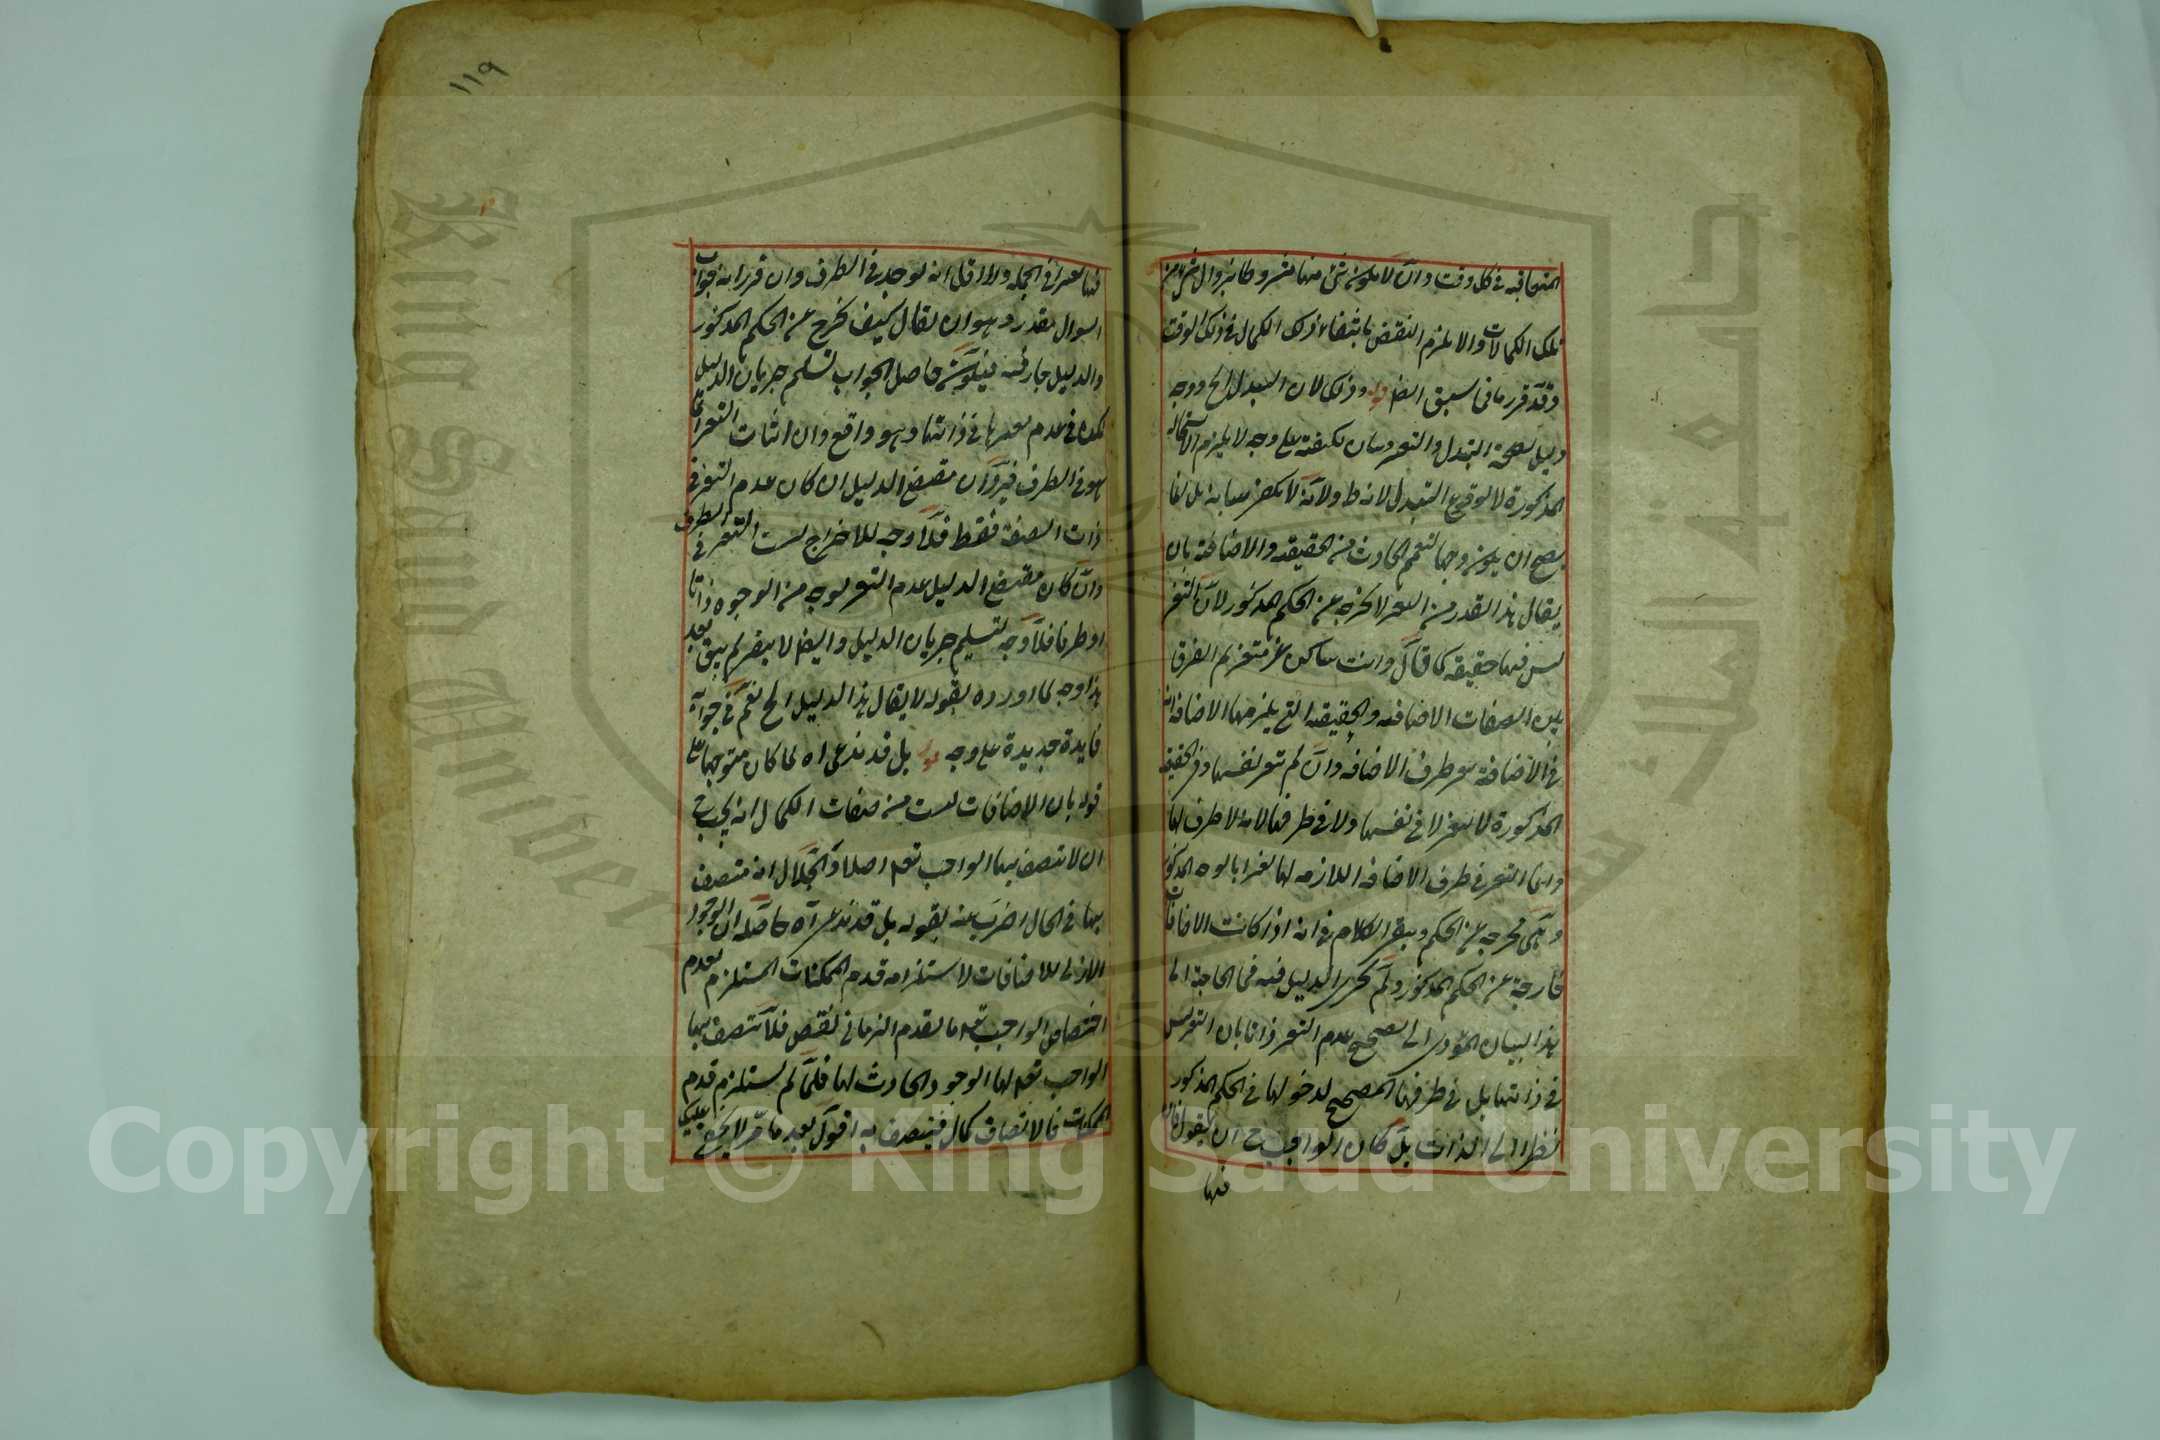 المتعاقبة في كل وقت وان لا يكون شئ منها مشروطا بزوال شئ من
تلك الكمالات والا يلزم النقض بانتفاء ذلك الكمال في ذلك الوقت
وقد قرر ما في سبق ايضا قوله وذلك لان التبدل الخ ووجه
دليل لصحة التبدل والتغير وبيان لكيفيته على وجه لا يلزم الاستحالة
المذكورة لا لوقوع التبدل لانه ط ولانه لا
يصح ان يكون وجها لتعميم الحادث من الحقيقة والاضافة بان
يقال هذا القدر من التغير لا يخرجه عن الحكم المذكور لان التغير
ليس فيها حقيقة كما قال وانت ساكن غير متغير ثم الفرق
بين الصفات الاضافية والحقيقية التي يلزمها الاضافة ان
في الاضافة تغير طرف الاضافة وان لم تتغير نفسها وفي الحقيقة
المذكورة لا يتغير لا في نفسها ولا في طرفها لانه لا طرف لها
وانما التغير في طرف الاضافة اللازمة لها
وهي مخرجة عن الحكم وبقي الكلام في انه اذا كانت الاضافات
خارجة عن الحكم المذكور ولم يجري الدليل فيه فما الحاجة الى
هذا البيان المؤدي الى تصحيح عدم التغير ذاتا بان التغير ليس
في ذاتها بل في طرفها المصحح لدخولها في الحكم المذكور
نظرا الى الذات بل كان الواجب ح ان يقول فان
فيها
فيها تغيرا في الجملة ولا اقل انه يوجد في الطرف وان قرر انه جواب
السوال مقدر وهو ان يقال كيف يخرج عن الحكم المذكور
والدليل جار فيه فيكون حاصل الجواب تسليم جريان الدليل
لكنه في عدم تغيرها في ذاتها وهو واقع وان اثبات التغير انما
هو في الطرف فيرد ان مقتضى الدليل ان كان عدم التغير في
ذات الصفة فقط فلا وجه للاخراج لسبب التغير في الطرف
وان كان مقتضى الدليل عدم التغير بوجه من الوجوه ذاتا
او طرفا فلا وجه لتسليم جريان الدليل وايضا لا يبقى لم يبق بعد
هذا وجه لما اورده بقوله لا يقال هذا الدليل الخ نعم في جوابه
فايدة جديدة على وجه قوله بل قد ندعى اه لما كان متوجها على
قوله بان الاضافات ليست من صفات الكمال انه يجب ح
ان لا تتصف بها الواجب تعه اصلا والحال انه متصف
بها في الحال اضرب عنه بقوله بل قد ندعى آه حاصله ان الوجود
الازلي للاضافات لاستلزامه قدم الممكنات المستلزم لعدم
اختصاص الواجب تعه بالقدم الزماني نقص فلا تتصف بها
الواجب تعه لها الوجود الحادث لها فلما لم يستلزم قدم
الممكنات فالاتصاف كمال فيتصف به اقول بعد ما مر لا يخفى عليك
١١٩
Copyright © King Saud University
King Saud University